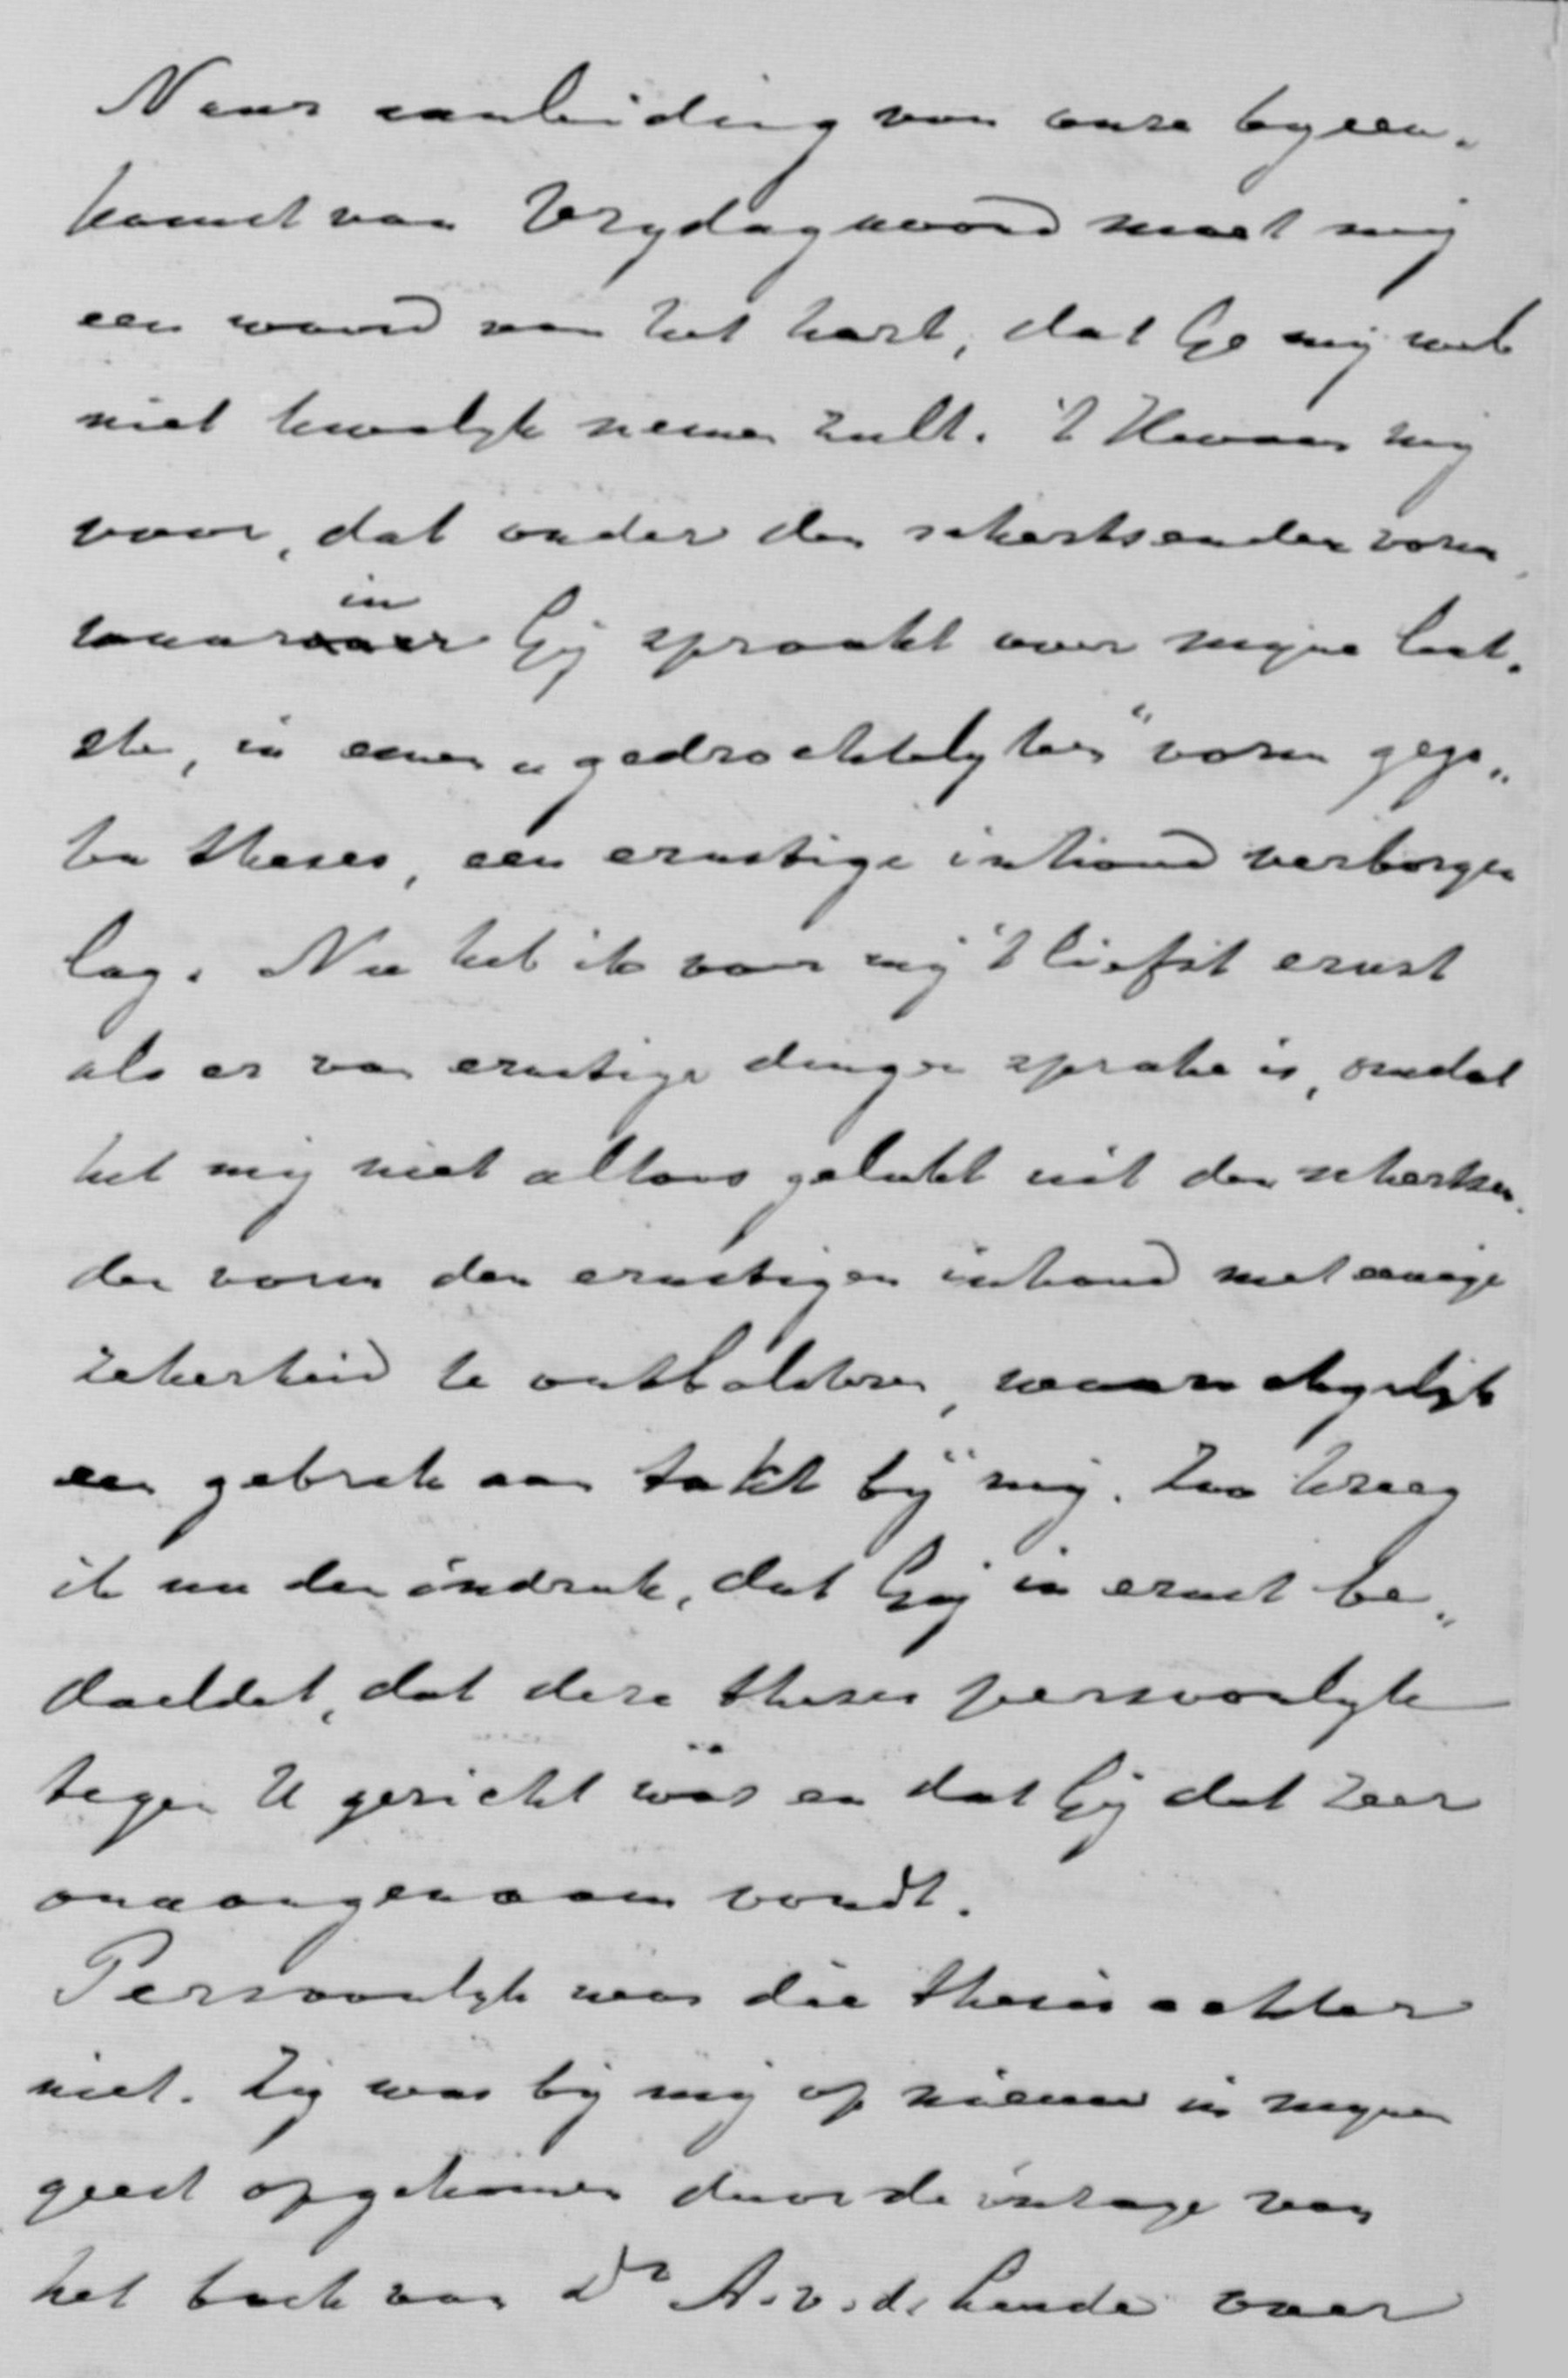 Naar aanleiding van onze byeen„
komst van Vrydagavond moet mij
een woord van het hart, dat Ge mij wel
niet kwalyk nemen zult. 't Kwam mij
voor, dat onder den schertsenden vorm
waarin Gij spraakt over mijne laat„
ste, in eenen „gedrochtelyken" vorm gego„
ten theses, een ernstige inhoud verborgen
lag. Nu heb ik voor mij 't liefst ernst
als er van ernstige dingen sprake is, omdat
het mij niet altoos gelukt uit den schertsen„
den vorm den ernstigen inhoud met eenige
zekerheid te ontbolsteren, waarschynlyk
een gebrek aan takt bij mij. Zoo kreeg
ik nu den indruk, dat Gij in ernst be„
doeldet, dat deze theses persoonlyk
tegen U gericht was en dat Gij dat zeer
onaangenaam vondt.
Persoonlyk was die thesis echter
niet. Zij was bij mij op nieuw in mynen
geest opgekomen door de inzage van
het boek van Dr A. v. d. Linde over